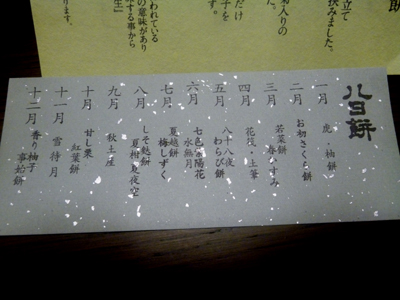 助
立て
挟みました。
菊入りの
た。
だけ
子を
われている
の意味があり
する事から
生』
ります。
八日餅
一月 虎・柚餅
二月 お初さくら餅
三月 若菜餅
春がすみ
四月 花筏・土筆
五月 八十八夜
わらび餅
六月 七色紫陽花
水無月
七月 夏越餅
梅しずく
八月 しそ麩餅
夏柑・夏夜空
九月 秋土産
十月 甘し栗
紅葉餅
十一月 雪待月
十二月 香り柚子
事始餅